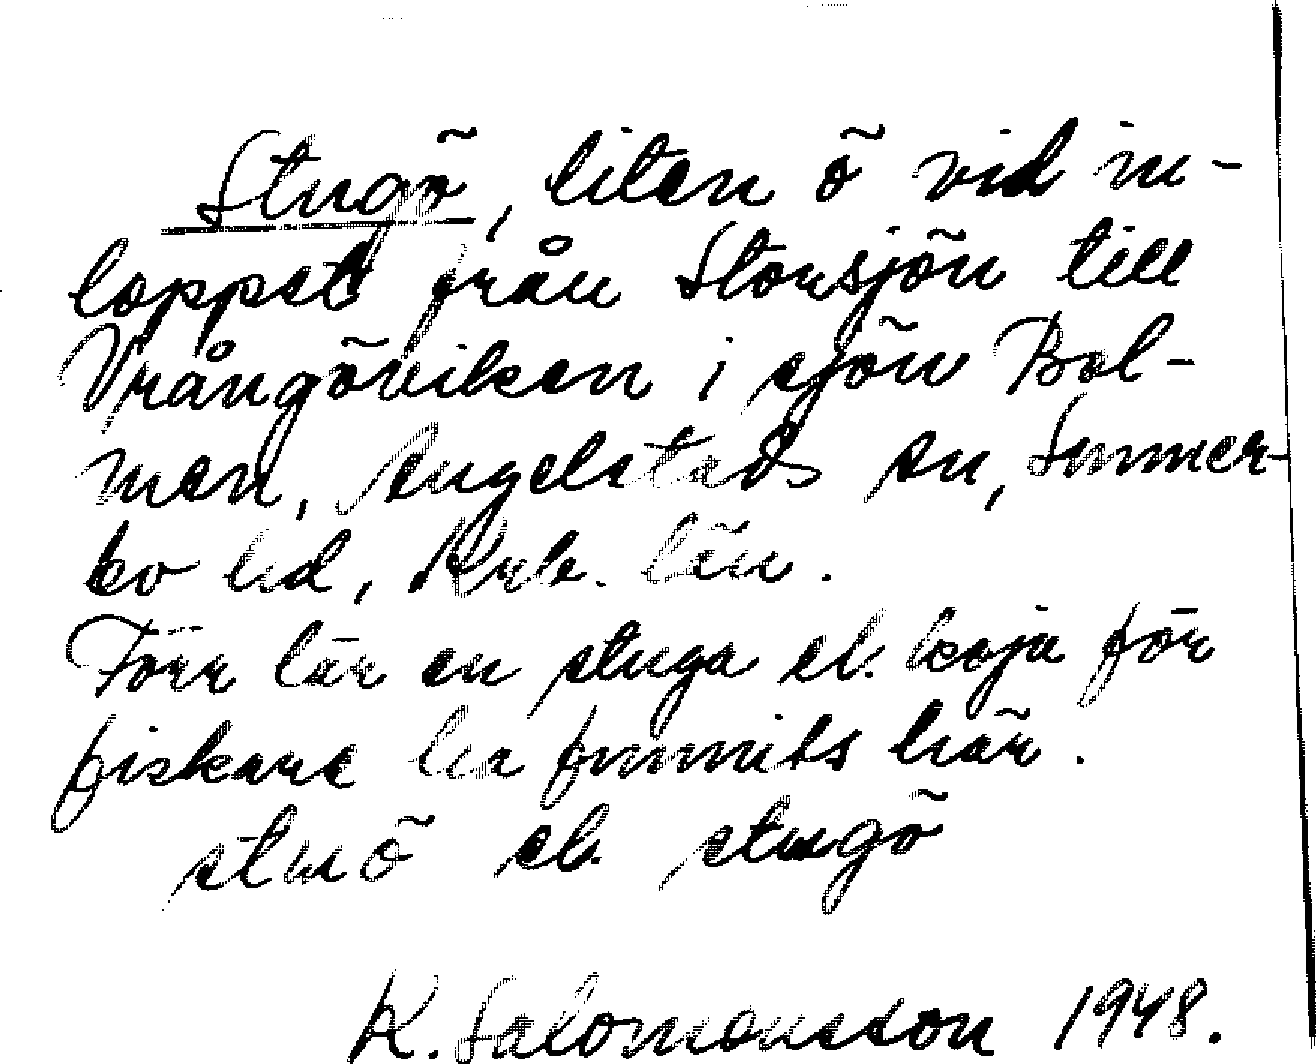 Stugö, liten ö vid in-
loppet från Storsjön till
Vrångöviken i sjön Bol-
men, Angelstads sn, Sunner-
bo hd, Krb. län.
Förr lär en stuga el. koja för
fiskare ha funnits här.
stuö el. stugö
K. Salomonsson 1948.